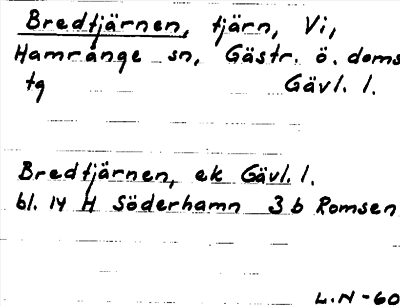 Bredtjärnen, tjärn, Vi,
Hamrånge sn, Gästr. ö. doms
tg Gävl. l.
Bredtjärnen, ek Gävl. l.
bl. 14 H Söderhamn 3 b Romsen
L.N-60